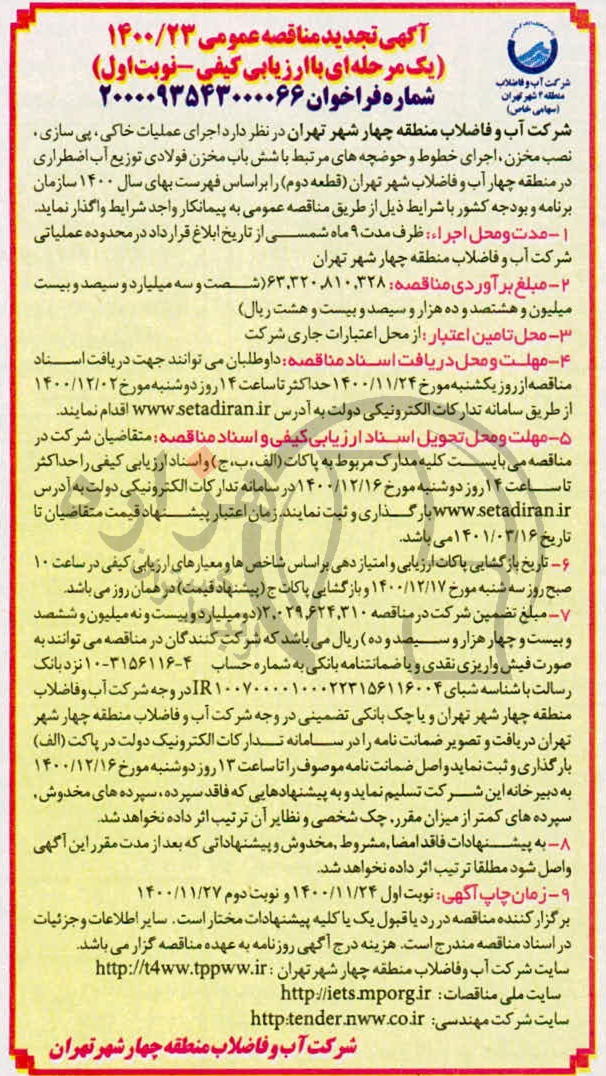 آگهی تجدید مناقصه عمومی ۱۴۰۰/۲۳
(یک مرحله ای با ارزیابی کیفی - نوبت اول)
شماره فراخوان ۲۰۰۰۰۹۳۵۴۳۰۰۰۰۶۶
شرکت آب و فاضلاب
منطقه ۴ شهر تهران
(سهامی خاص)
شرکت آب و فاضلاب منطقه چهار شهر تهران در نظر دارد اجرای عملیات خاکی، پی سازی،
نصب مخزن، اجرای خطوط و حوضچه های مرتبط با شش باب مخزن فولادی توزیع آب اضطراری
در منطقه چهار آب و فاضلاب شهر تهران (قطعه دوم) را براساس فهرست بهای سال ۱۴۰۰ سازمان
برنامه و بودجه کشور با شرایط ذیل از طریق مناقصه عمومی به پیمانکار واجد شرایط واگذار نماید.
۱- مدت و محل اجراء: ظرف مدت ۹ ماه شمسی از تاریخ ابلاغ قرارداد در محدوده عملیاتی
شرکت آب و فاضلاب منطقه چهار شهر تهران
۲- مبلغ برآوردی مناقصه: ۶۳,۳۲۰,۸۱۰,۳۲۸ (شصت و سه میلیارد و سیصد و بیست
میلیون و هشتصد و ده هزار و سیصد و بیست و هشت ریال)
۳- محل تامین اعتبار: از محل اعتبارات جاری شرکت
۴- مهلت و محل دریافت اسناد مناقصه: داوطلبان می توانند جهت دریافت اسناد
مناقصه از روز یکشنبه مورخ ۱۴۰۰/۱۱/۲۴ حداکثر تا ساعت ۱۴ روز دوشنبه مورخ ۱۴۰۰/۱۲/۰۲
از طریق سامانه تدارکات الکترونیکی دولت به آدرس www.setadiran.ir اقدام نمایند.
۵- مهلت و محل تحویل اسناد ارزیابی کیفی و اسناد مناقصه: متقاضیان شرکت در
مناقصه می بایست کلیه مدارک مربوط به پاکات (الف، ب، ج) و اسناد ارزیابی کیفی را حداکثر
تا ساعت ۱۴ روز دوشنبه مورخ ۱۴۰۰/۱۲/۱۶ در سامانه تدارکات الکترونیکی دولت به آدرس
www.setadiran.ir بارگذاری و ثبت نمایند. زمان اعتبار پیشنهاد قیمت متقاضیان تا
تاریخ ۱۴۰۱/۰۳/۱۶ می باشد.
۶- تاریخ بازگشایی پاکات ارزیابی و امتیاز دهی براساس شاخص ها و معیارهای ارزیابی کیفی در ساعت ۱۰
صبح روز سه شنبه مورخ ۱۴۰۰/۱۲/۱۷ و بازگشایی پاکات ج (پیشنهاد قیمت) در همان روز می باشد.
۷- مبلغ تضمین شرکت در مناقصه ۲,۰۲۹,۶۲۴,۳۱۰ (دو میلیارد و بیست و نه میلیون و ششصد
و بیست و چهار هزار و سیصد و ده) ریال می باشد که شرکت کنندگان در مناقصه می توانند به
صورت فیش واریزی نقدی و یا ضمانتنامه بانکی به شماره حساب ۴-۳۱۵۶۱۱۶-۱۰ نزد بانک
رسالت با شناسه شبای IR۱۰۰۷۰۰۰۰۱۰۰۰۲۲۳۱۵۶۱۱۶۰۰۴ در وجه شرکت آب و فاضلاب
منطقه چهار شهر تهران و یا چک بانکی تضمینی در وجه شرکت آب و فاضلاب منطقه چهار شهر
تهران دریافت و تصویر ضمانت نامه را در سامانه تدارکات الکترونیک دولت در پاکت (الف)
بارگذاری و ثبت نماید و اصل ضمانت نامه موصوف را تا ساعت ۱۳ روز دوشنبه مورخ ۱۴۰۰/۱۲/۱۶
به دبیرخانه این شرکت تسلیم نماید و به پیشنهادهایی که فاقد سپرده، سپرده های مخدوش،
سپرده های کمتر از میزان مقرر، چک شخصی و نظایر آن ترتیب اثر داده نخواهد شد.
۸- به پیشنهادات فاقد امضا, مشروط, مخدوش و پیشنهاداتی که بعد از مدت مقرر این آگهی
واصل شود مطلقا ترتیب اثر داده نخواهد شد.
۹- زمان چاپ آگهی: نوبت اول ۱۴۰۰/۱۱/۲۴ و نوبت دوم ۱۴۰۰/۱۱/۲۷
برگزار کننده مناقصه در رد یا قبول یک یا کلیه پیشنهادات مختار است. سایر اطلاعات و جزئیات
در اسناد مناقصه مندرج است. هزینه درج آگهی روزنامه به عهده مناقصه گزار می باشد.
سایت شرکت آب و فاضلاب منطقه چهار شهر تهران: http://t4ww.tppww.ir
سایت ملی مناقصات: http://iets.mporg.ir
سایت شرکت مهندسی: http:tender.nww.co.ir
شرکت آب و فاضلاب منطقه چهار شهر تهران